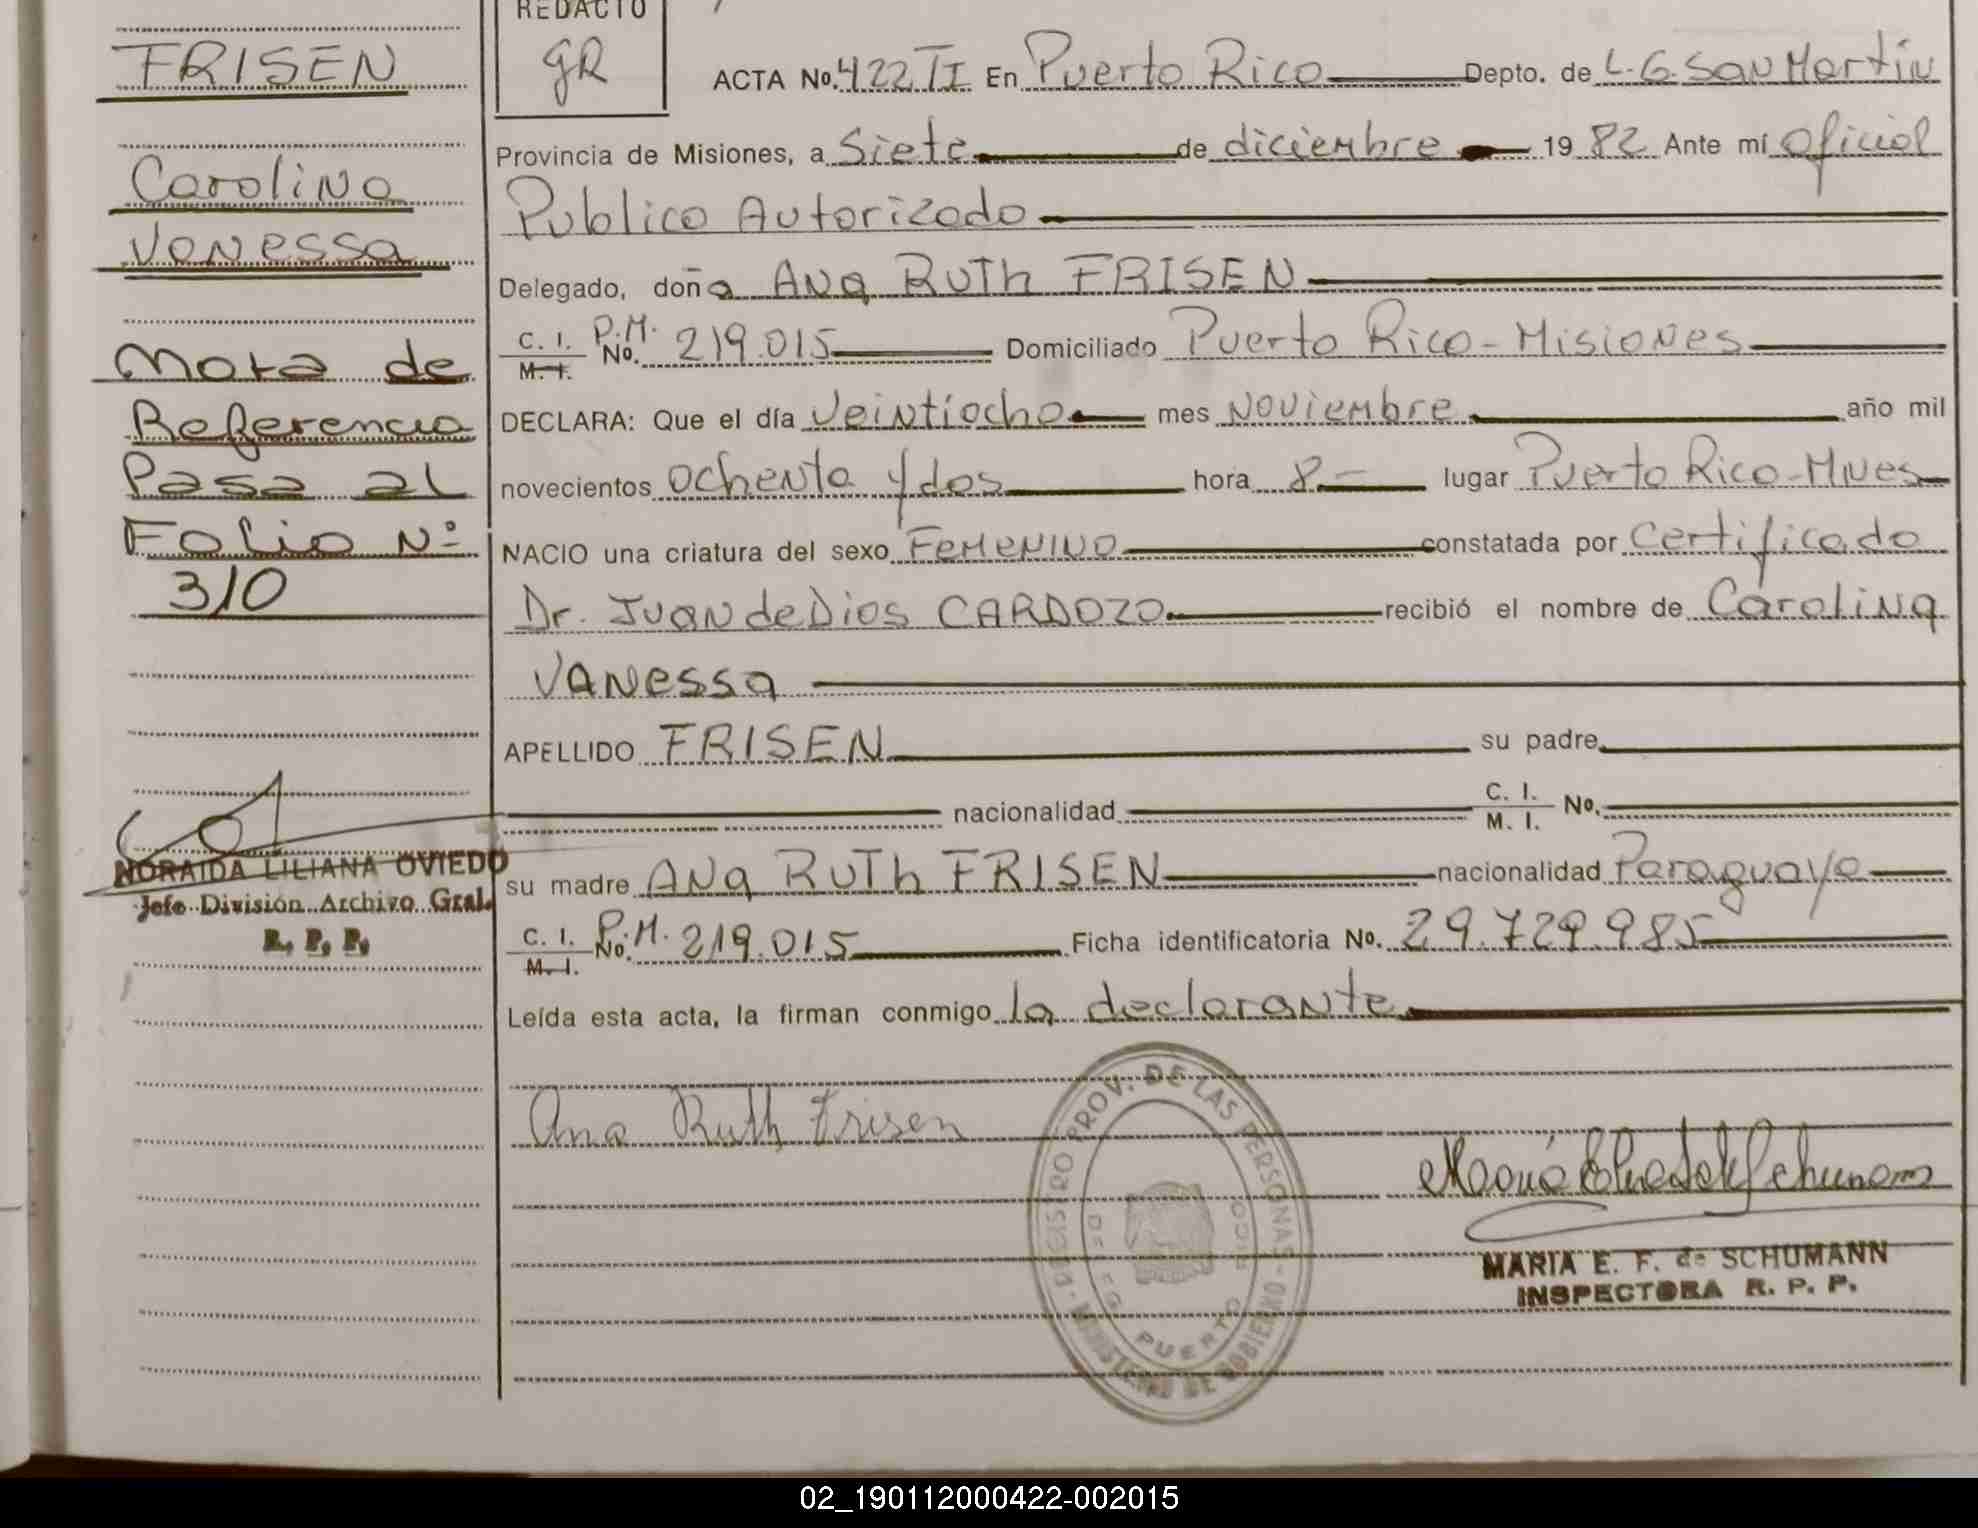 REDACTO
gR
FRISEN
Carolina
Vanessa
Nota de
Referencia
Pasa al
Folio Nº
310
NORAIDA LILIANA OVIEDO
Jefe División Archivo Gral.
R. P. P.
ACTA No. 422 TI En Puerto Rico Depto. de L.G. San Martín
Provincia de Misiones, a Siete de diciembre 1982 Ante mí Oficial
Publico Autorizado
Delegado, doña Ana Ruth FRISEN
C. I. P.M.
M. I. No. 219.015 Domiciliado Puerto Rico - Misiones
DECLARA: Que el día veintiocho mes noviembre año mil
novecientos ochenta y dos hora 8.- lugar Puerto Rico - Mnes
NACIO una criatura del sexo Femenino constatada por Certificado
Dr. Juan de Dios CARDOZO recibió el nombre de Carolina
Vanessa
APELLIDO FRISEN su padre
nacionalidad C. I. M. I. No.
su madre Ana Ruth FRISEN nacionalidad Paraguaya
C. I. P.M.
M. I. No. 219.015 Ficha identificatoria No. 29.729.985
Leída esta acta, la firman conmigo la declarante
Ana Ruth Frisen
REGISTRO PROV. DE LAS PERSONAS - MINISTERIO DE GOBIERNO
PUERTO RICO
MARIA E. F. de SCHUMANN
INSPECTORA R. P. P.
02_190112000422-002015